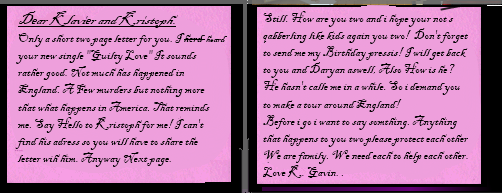 Dear Klavier and Kristoph.
Only a short two page letter for you. I herd heard
your new single "Guilty Love" It sounds
rather good. Not much has happened in
England. A Few murders but nothing more
that what happens in America. That reminds
me. Say Hello to Kristoph for me! I can't
find his adress so you will have to share the
letter wih him. Anyway Next page.
Still. How are you two and i hope your not s
qabberling like kids again you two! Don't forget
to send me my Birthday pressis! I will get back
to you and Daryan aswell. Also How is he?
He hasn't calle me in a while. So i demand you
to make a tour around England!
Before i go i want to say somthing. Anything
that happens to you two please protect each other
We are family. We need each to help each other.
Love K.. Gavin. .